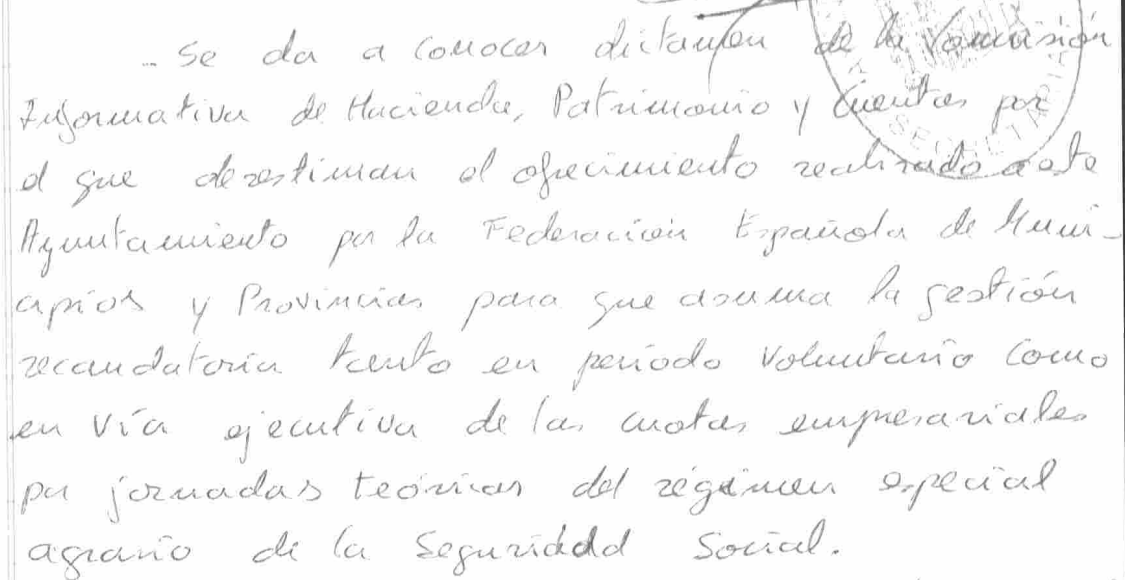 Se da a conocer dictamen de la Comisión
Informativa de Hacienda, Patrimonio y Cuentas por
el que desestiman el ofrecimiento realizado a este
Ayuntamiento por la Federación Española de Muni-
cipios y Provincias para que asuma la gestión
recaudatoria tanto en período voluntario como
en vía ejecutiva de las cuotas empresariales
por jornadas teóricas del régimen especial
agrario de la Seguridad Social.
SECRETARIA